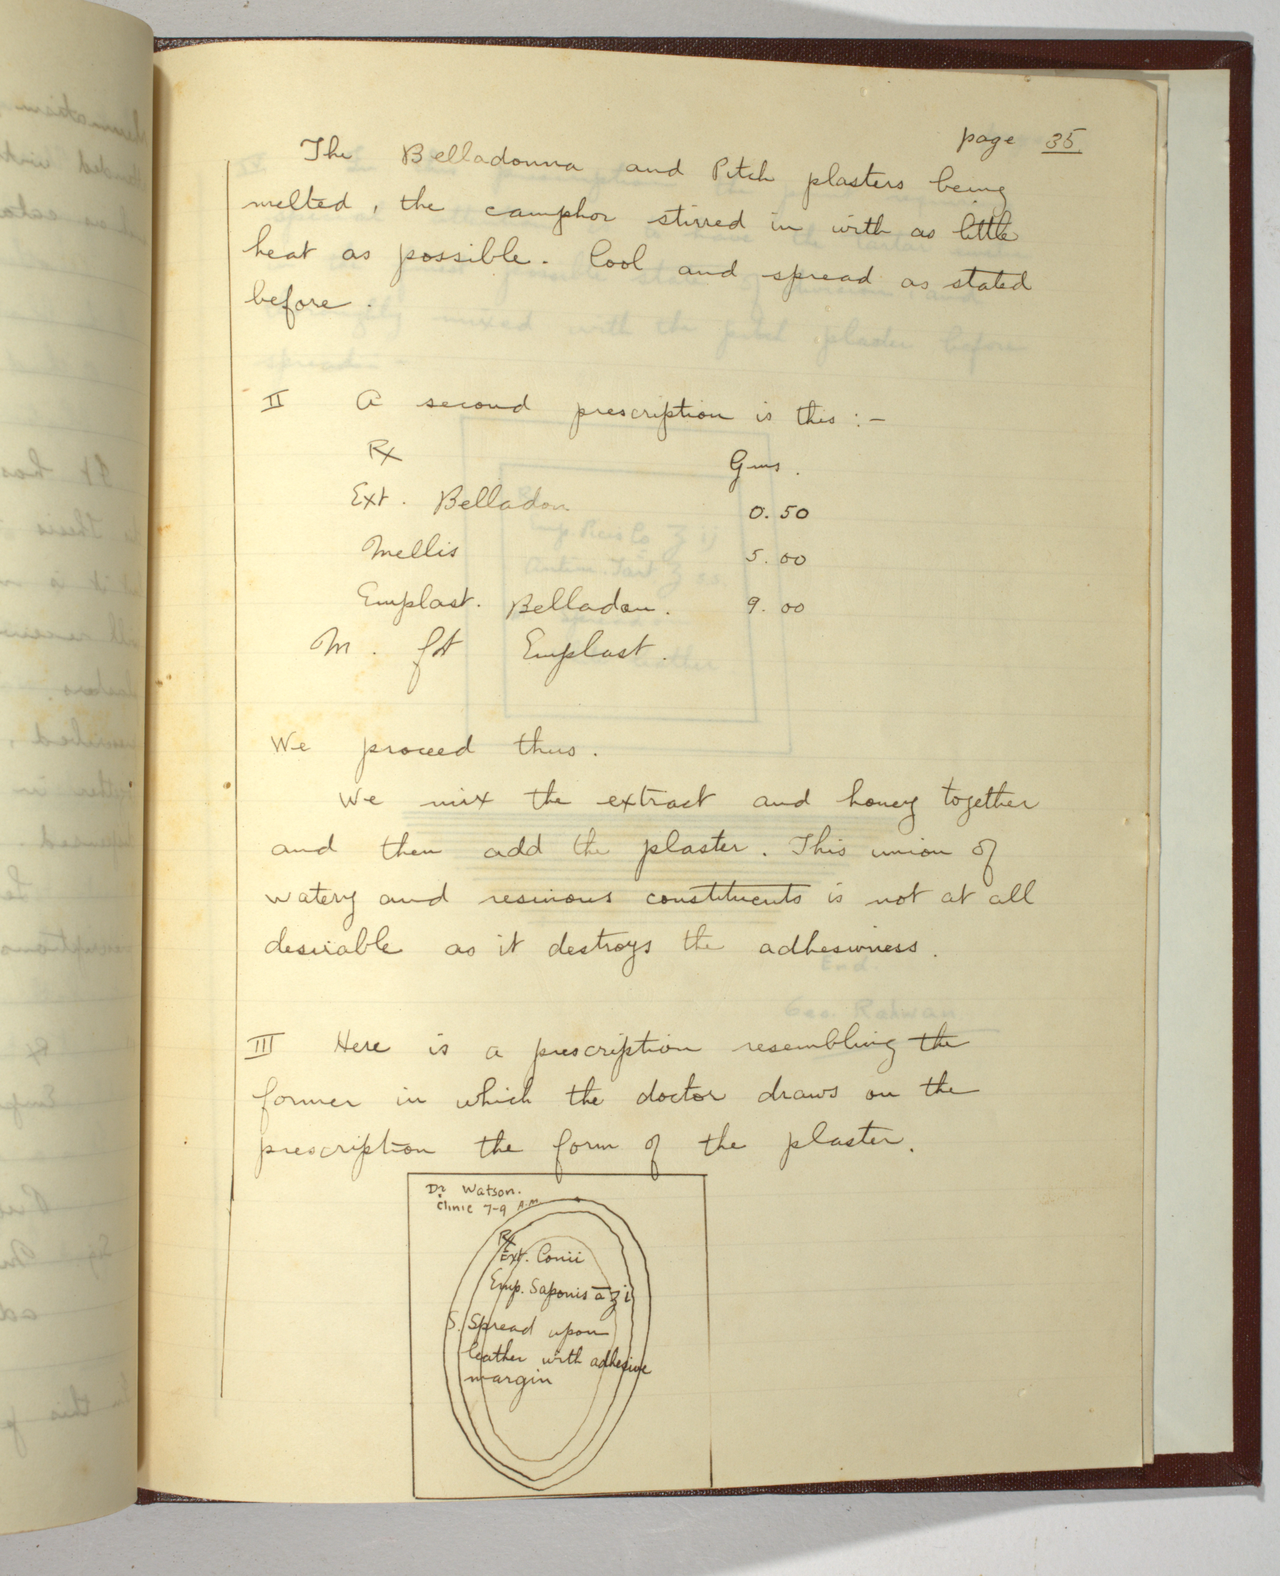 page 35.
The Belladonna and Pitch plasters being
melted, the camphor stirred in with as little
heat as possible. Cool and spread as stated
before.
II A second prescription is this :-
Rx Gms.
Ext. Belladon 0.50
Mellis 5.00
Emplast. Belladon. 9.00
M. ft Emplast.
We proceed thus.
We mix the extract and honey together
and then add the plaster. This union of
watery and resinous constituents is not at all
desirable as it destroys the adhesiveness.
III Here is a prescription resembling the
former in which the doctor draws on the
prescription the form of the plaster.
Dr Watson.
Clinic 7-9 A.M.
Rx
Ext. Conii
Emp. Saponis ā ʒ i
S. Spread upon
leather with adhesive
margin